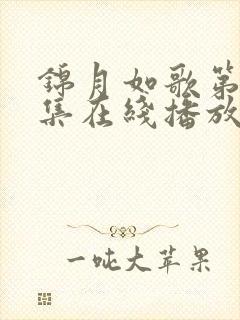 錦月如歌第
集在綫播放
一吨大苹果